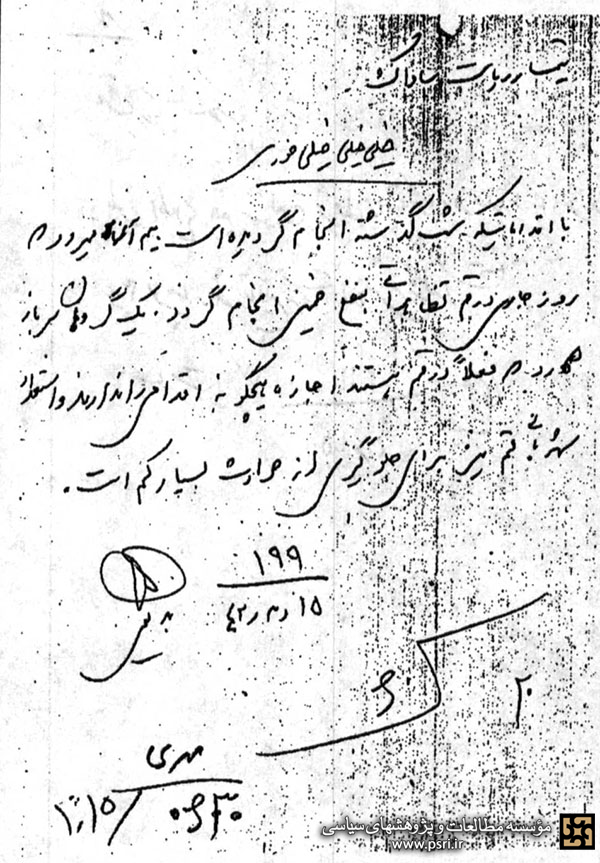 تیمسار ریاست ساواک
خیلی خیلی خیلی فوری
با اقداماتیکه شب گذشته انجام گردیده است بیم آنهم میرود در
روز جاری در قم تظاهراتی بنفع خمینی انجام گردد. یک گروهان سرباز
که در قم فعلاً در قم هستند اجازه هیچگونه اقدامی را ندارند و استعداد
شهربانی قم نیز برای جلوگیری از حوادث بسیار کم است.
۱۹۹
۱۵ ر ۳ ر ۴۲
بدیعی
مهدی
۰۶۳۰ / ۱۵
مؤسسه مطالعات و پژوهشهای سیاسی
www.psri.ir